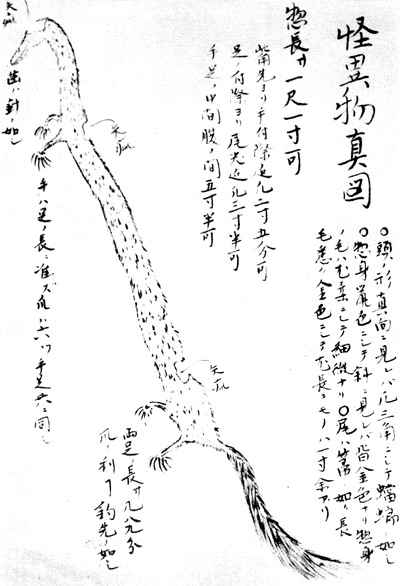 怪異物真図
○頭ノ形真向ニ見レバ凡三角ニシテ蟷螂ノ如シ
○惣身鼠色ニシテ斜ニ見レバ皆金色ナリ惣身
ノ毛ハ
ニシテ細微ナリ○尾ハ箒ノ如ク長
毛悉ク金色ニシテ
長キモノハ一寸余アリ
惣長サ一尺一寸可
觜先ヨリ手付際迄凡二寸五分可
足ノ付際ヨリ尾先迄凡三寸半可
手足ノ中間腹ノ間五寸半可
矢疵
歯ハ針ノ如シ
矢疵
手ハ足ノ長ニ准ズ爪ハ六ツ手足共ニ同シ
矢疵
両足ノ長サ凡八九分
爪利ク釣先ノ如シ